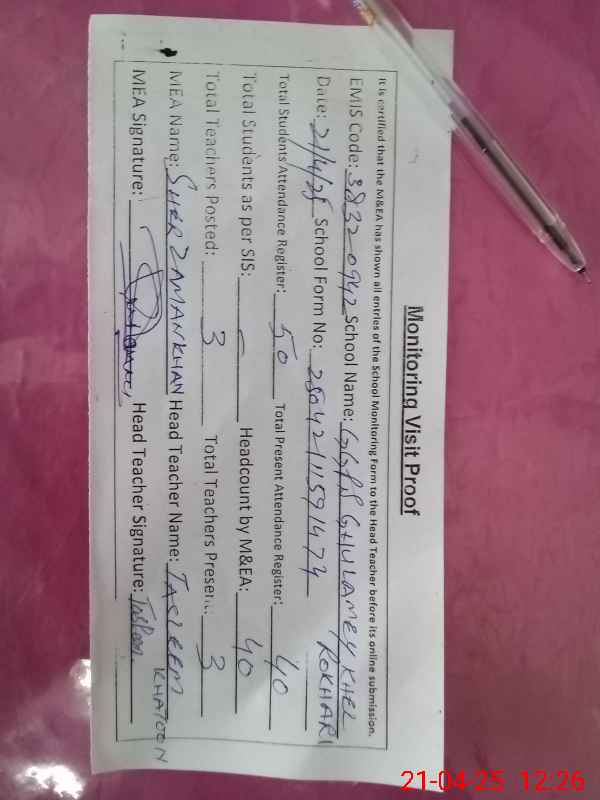 Monitoring Visit Proof
It is certified that the M&EA has shown all entries of the School Monitoring Form to the Head Teacher before its online submission.
EMIS Code: 38320942 School Name: GGPS GHULAMEY KHEL
ROKHARI
Date: 21/4/25 School Form No: 25042111591474
Total Students Attendance Register: 50 Total Present Attendance Register: 40
Total Students as per SIS: Headcount by M&EA: 40
Total Teachers Posted: 3 Total Teachers Present: 3
MEA Name: SHER ZAMAN KHAN Head Teacher Name: TASLEEM
KHATOON
MEA Signature: Head Teacher Signature:
21-04-25 12:26